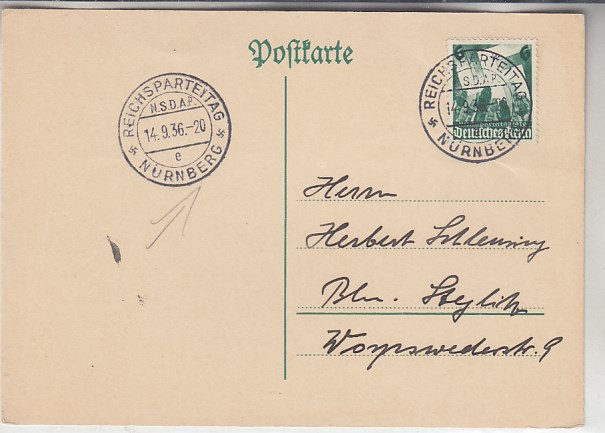 Postkarte
REICHSPARTEITAG
N.S.D.A.P.
14.9.36.-20
e
NÜRNBERG
6 6
REICHSPARTEITAG
N.S.D.A.P.
14.9.36.-20
Deutsches Reich
NÜRNBERG
Herrn
Herbert
Bln. Steglitz
Worpswederstr. 9